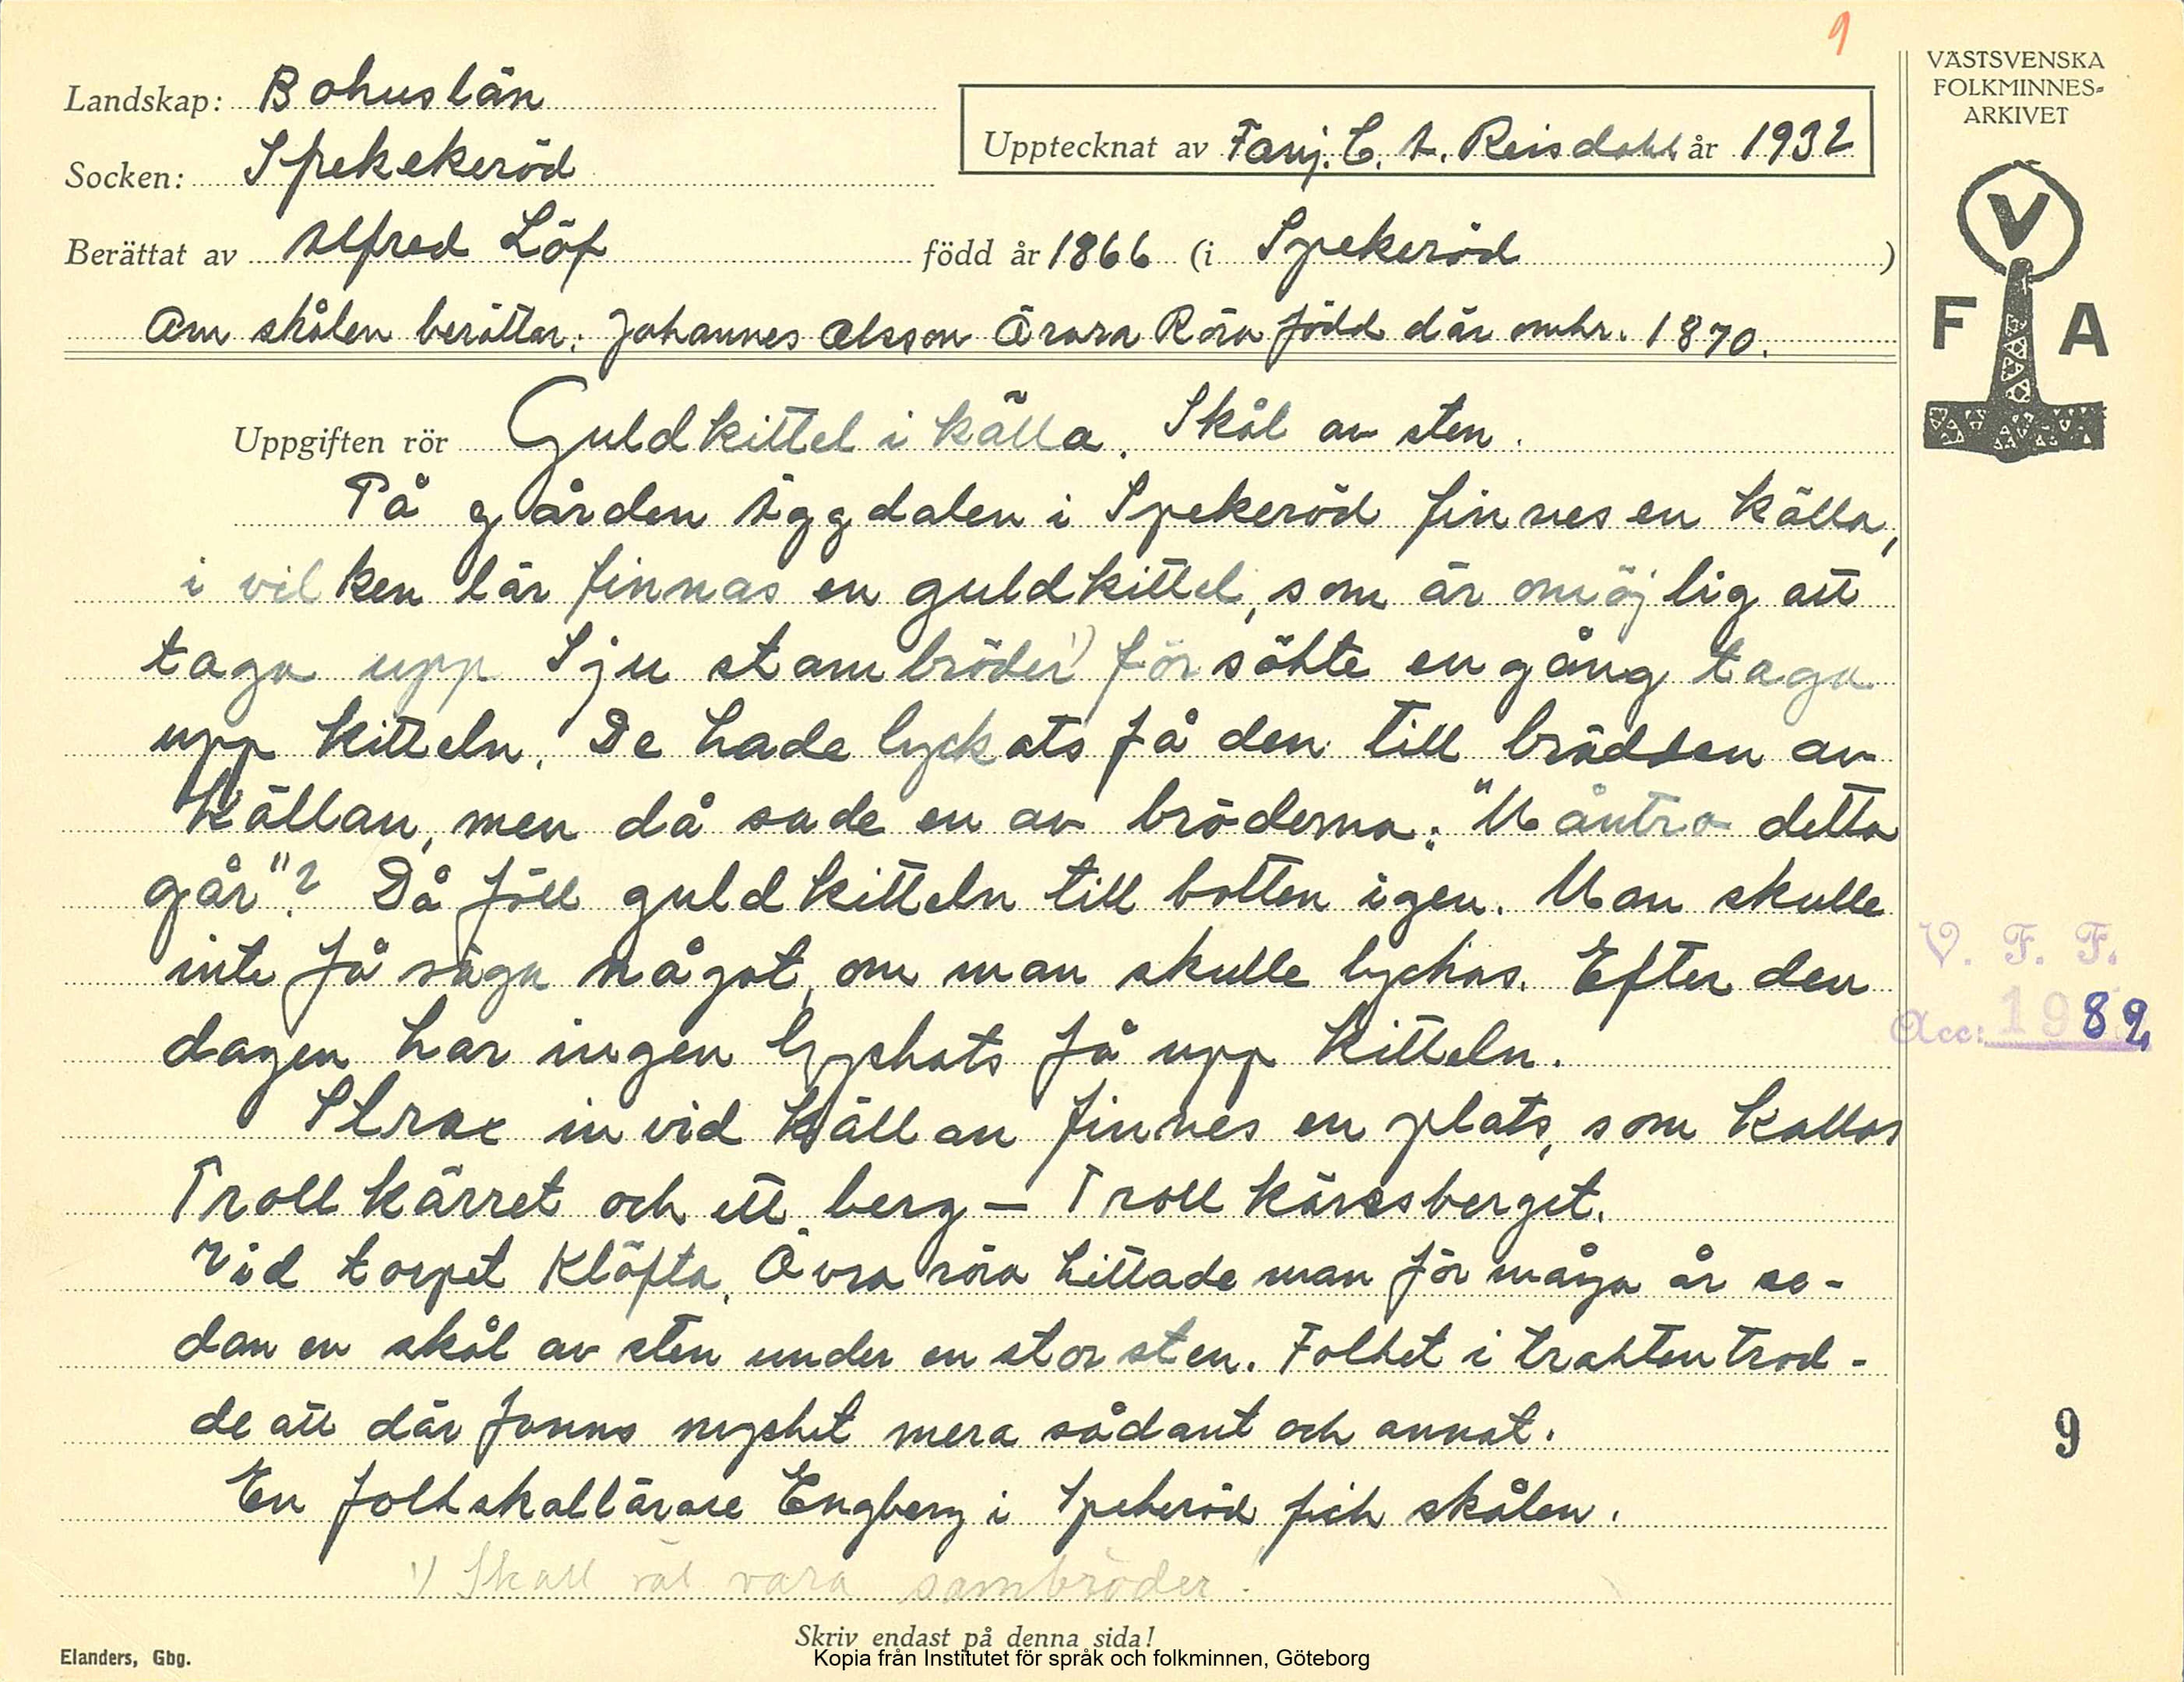 9
Landskap: Bohuslän
Socken: Spekekeröd
Upptecknat av Fanj. C. A. Reisdahl år 1932
Berättat av Alfred Löf född år 1866 (i Spekeröd)
Om skålen berättar: Johannes Olsson Röra född där omkr. 1870.
VÄSTSVENSKA
FOLKMINNES-
ARKIVET
V
F A
Uppgiften rör Guldkittel i källa. Skål av sten.
På gården Äggdalen i Spekeröd finnes en källa,
i vilken lär finnas en guldkittel, som är omöjlig att
taga upp Sju stambröder 1) försökte en gång taga
upp kitteln. De hade lyckats få den till brädden av
källan, men då sade en av bröderna: "Måntro detta
går"? Då föll guldkitteln till botten igen. Man skulle
inte få säga något, om man skulle lyckas. Efter den
dagen har ingen lyckats få upp kitteln.
Strax invid källan finnes en plats, som kallas
Trollkärret och ett berg – Trollkärrsberget.
Vid torpet Klöfta, Övra röra hittade man för många år se-
dan en skål av sten under en stor sten. Folket i trakten trod-
de att där fanns mycket mera sådant och annat.
En folkskollärare Engberg i Spekeröd fick skålen.
1) Skall väl vara sambröder.
V. F. F.
Acc: 1982
9
Skriv endast på denna sida!
Elanders, Gbg.
Kopia från Institutet för språk och folkminnen, Göteborg